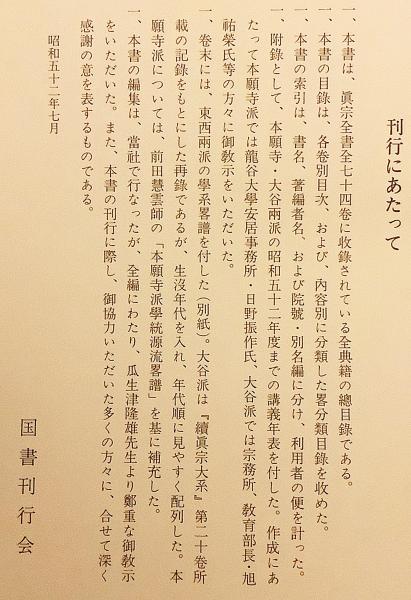 刊行にあたって
一、本書は、眞宗全書全七十四卷に收錄されている全典籍の總目録である。
一、本書の目録は、各卷別目次、および、内容別に分類した畧分類目録を收めた。
一、本書の索引は、書名、著編者名、および院號・別名編に分け、利用者の便を計った。
一、附錄として、本願寺・大谷兩派の昭和五十二年度までの講義年表を付した。作成にあ
たって本願寺派では龍谷大學安居事務所・日野振作氏、大谷派では宗務所、教育部長・旭
祐榮氏等の方々に御教示をいただいた。
一、卷末には、東西兩派の學系畧譜を付した(別紙)。大谷派は『續眞宗大系』第二十卷所
載の記錄をもとにした再錄であるが、生沒年代を入れ、年代順に見やすく配列した。本
願寺派については、前田慧雲師の「本願寺派學統源流畧譜」を基に補充した。
一、本書の編集は、當社で行なったが、全編にわたり、瓜生津隆雄先生より鄭重な御教示
をいただいた。また、本書の刊行に際し、御協力いただいた多くの方々に、合せて深く
感謝の意を表するものである。
昭和五十二年七月
国書刊行会